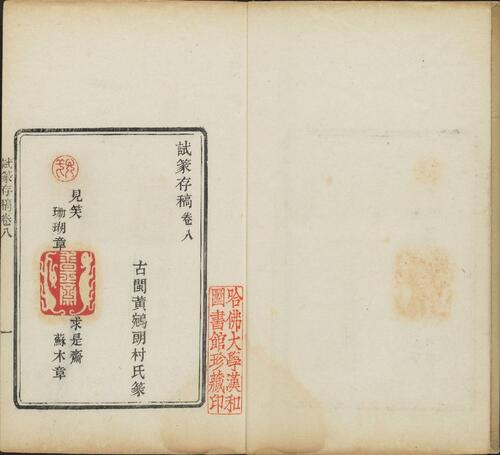 哈佛大學漢和
圖書館珍藏印
試篆存稿卷八
古閩黃鵷朋村氏篆
求是齋
蘇木章
見笑
珊瑚章
試篆存稿卷八
一